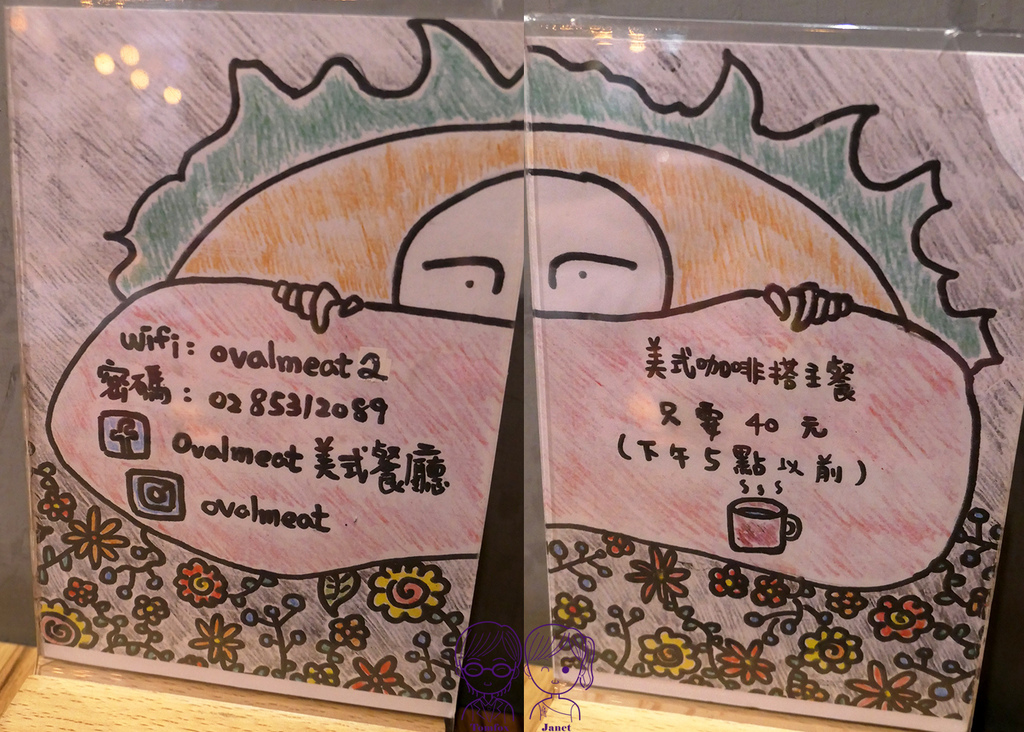 wifi: ovalmeat2
密碼: 0285312089
Ovalmeat 美式餐廳
ovalmeat
美式咖啡搭主餐
只要 40 元
(下午5點以前)
Janet